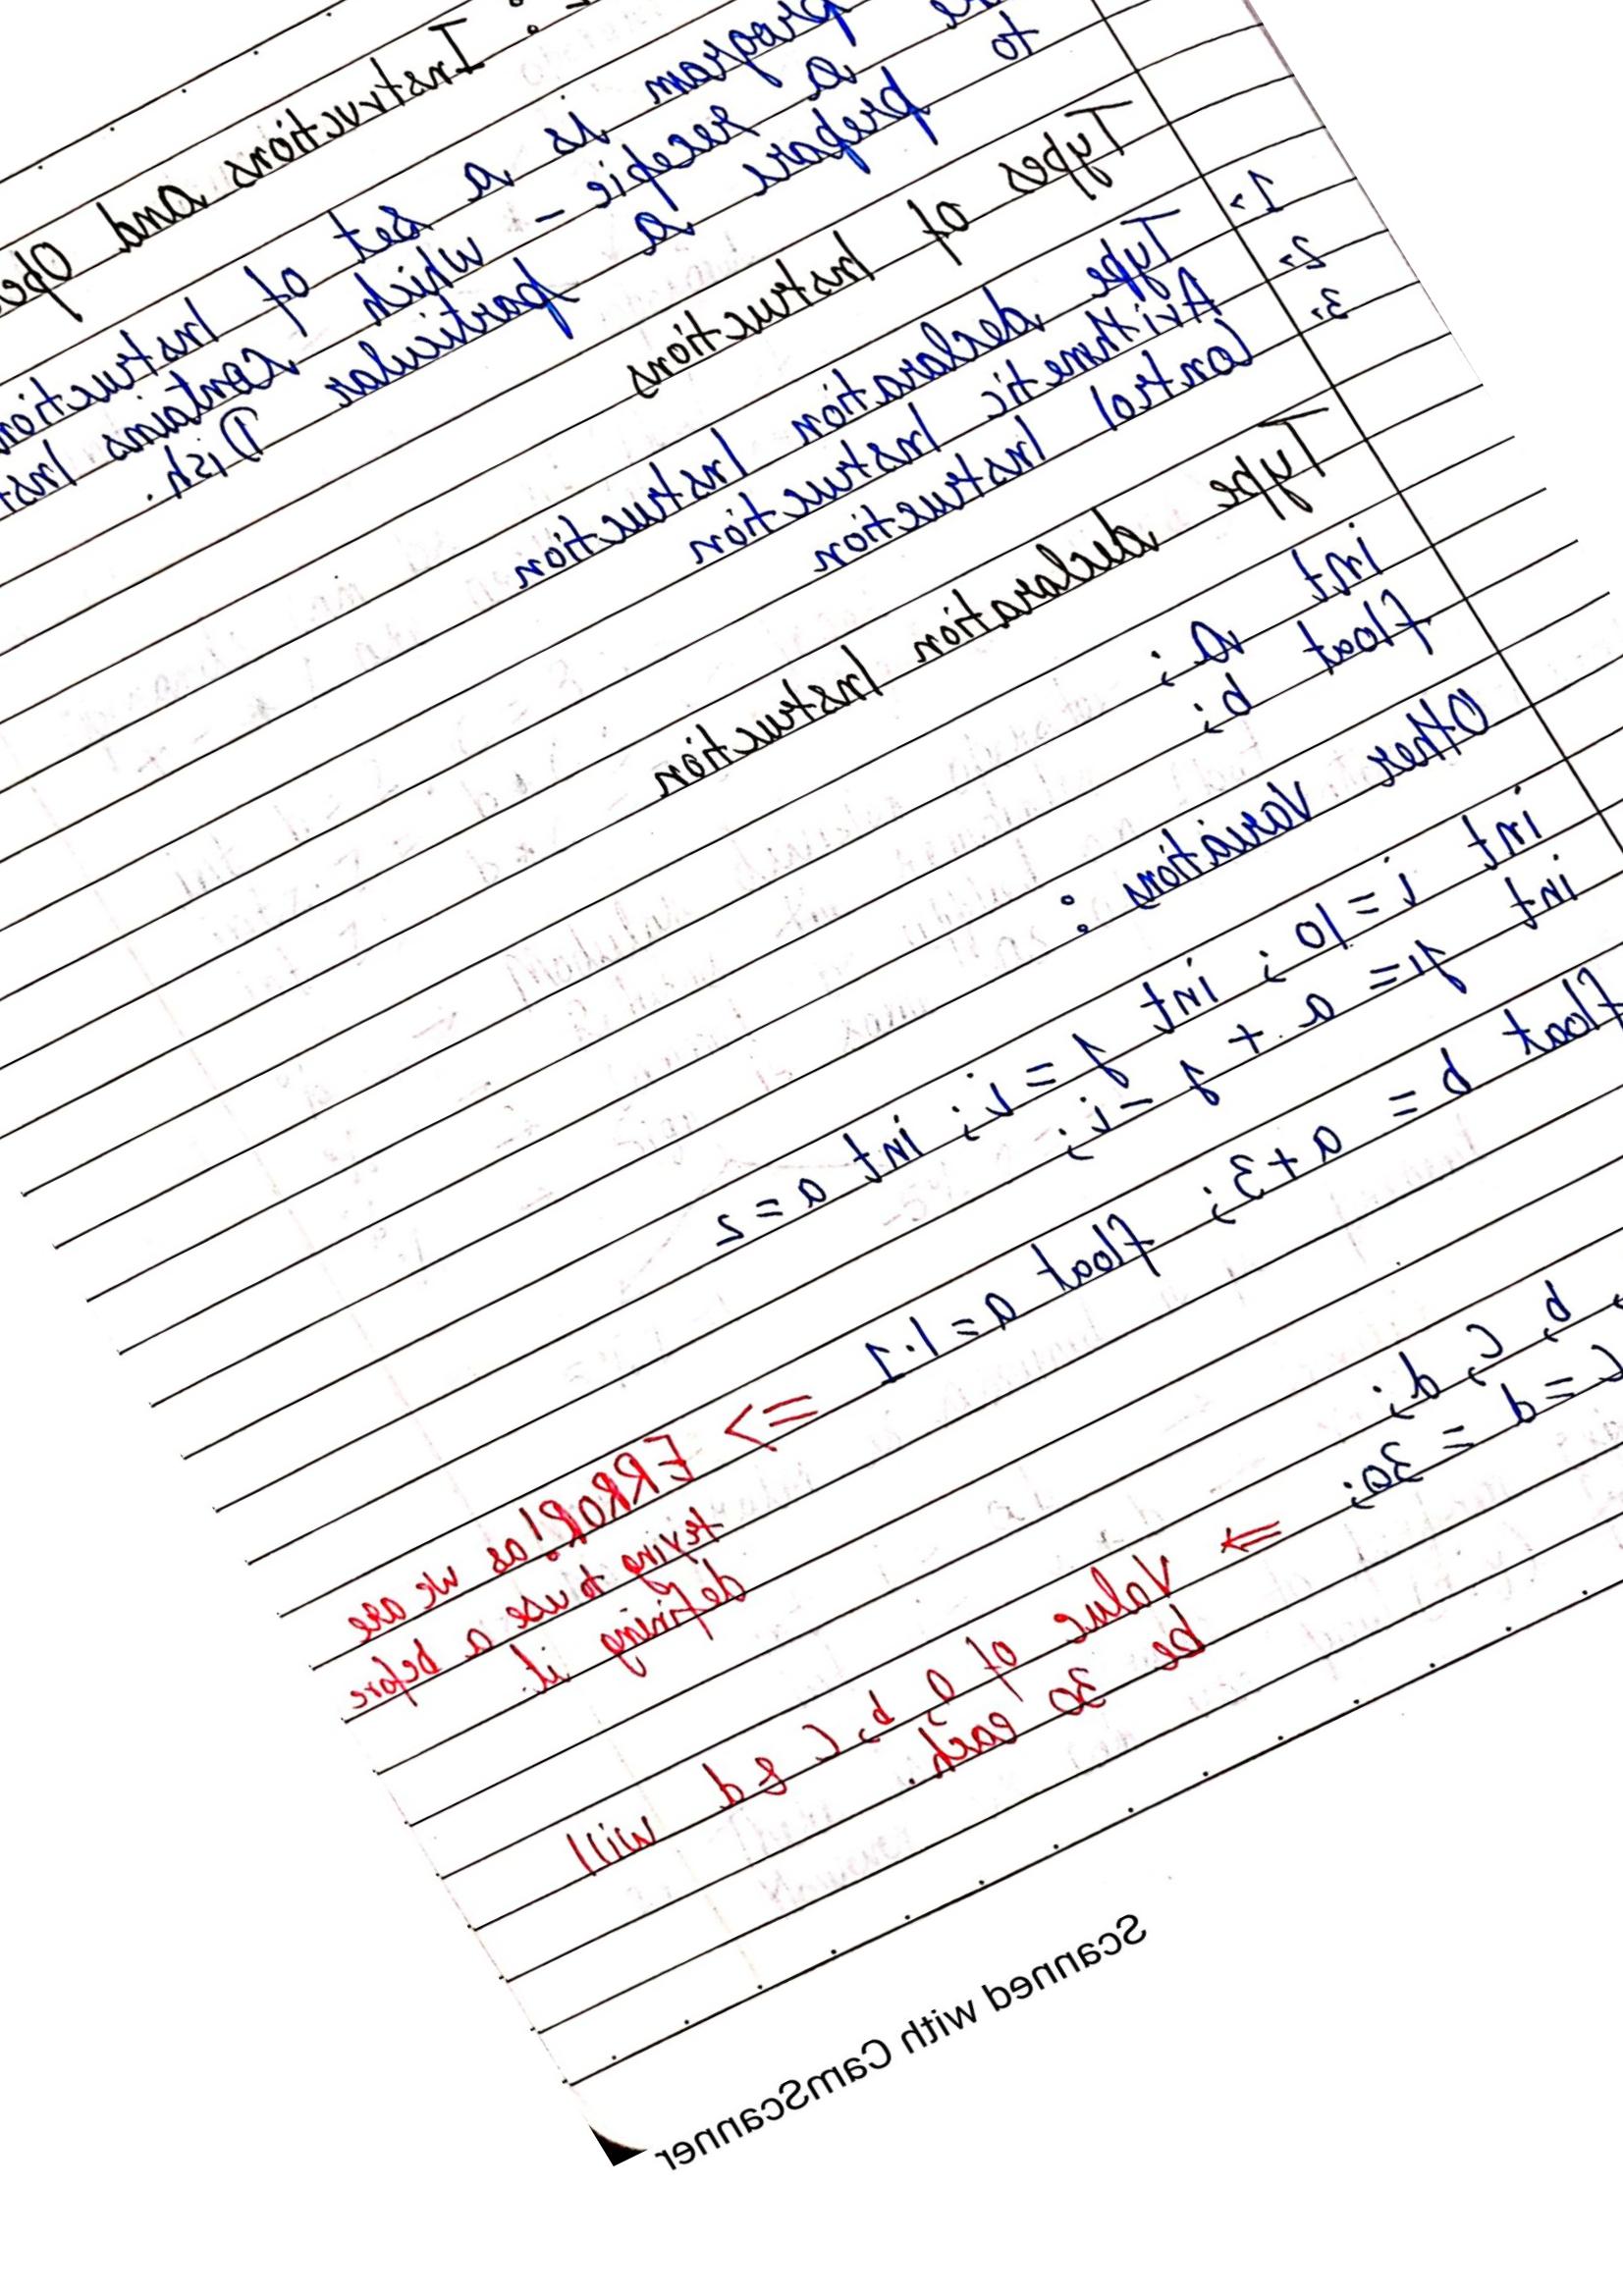 : Instructions and Ope
program is a set of Instruction
a recepie - which contains Inst
to prepare a particular Dish.
Types of Instructions
1> Type declaration Instruction
2> Arithmetic Instruction
3> Control Instruction
Type declaration Instruction
int a;
float b;
Other Variations :
int i = 10; int j = i; int a = 2
int j1 = a + j - i;
float b = a+3; float a = 1.1 => ERROR! as we are
trying to use a before
defining it.
b, c, d;
c = d = 30; => Value of a, b, c & d will
be 30 each.
Scanned with CamScanner